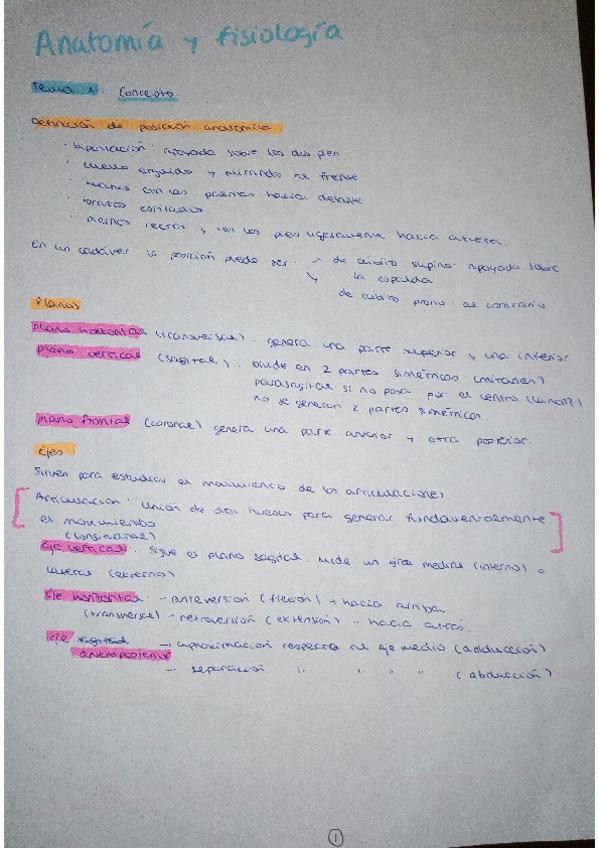 Anatomía y fisiología
Tema 1. Concepto.
Definición de posición anatómica
· bipedación: apoyada sobre los dos pies
· cuello erguido y mirando al frente
· manos con las palmas hacia delante
· brazos estirados
· piernas rectas y con los pies ligeramente hacia afuera.
En un cadáver la posición puede ser: → de cúbito supino: apoyado sobre
la espalda
de cúbito prono: al contrario
Planos
plano horizontal (transversal): genera una parte superior y una inferior
plano vertical (sagital): divide en 2 partes simétricas
parasagital si no pasa por el centro
no se generan 2 partes simétricas.
plano frontal (coronal) genera una parte anterior y otra posterior.
Ejes
Sirven para estudiar el movimiento de las articulaciones
Articulación: unión de dos huesos para generar fundamentalmente
el movimiento
(longitudinal)
Eje vertical: sigue el plano sagital. mide un giro medial (interno) o
lateral (externo)
Eje horizontal: - anteversión (flexión) → hacia arriba
(transversal) - retroversión (extensión) - hacia atrás.
eje sagital → aproximación respecto al eje medio (adducción)
anteroposterior
- separación " " " " (abducción)
1